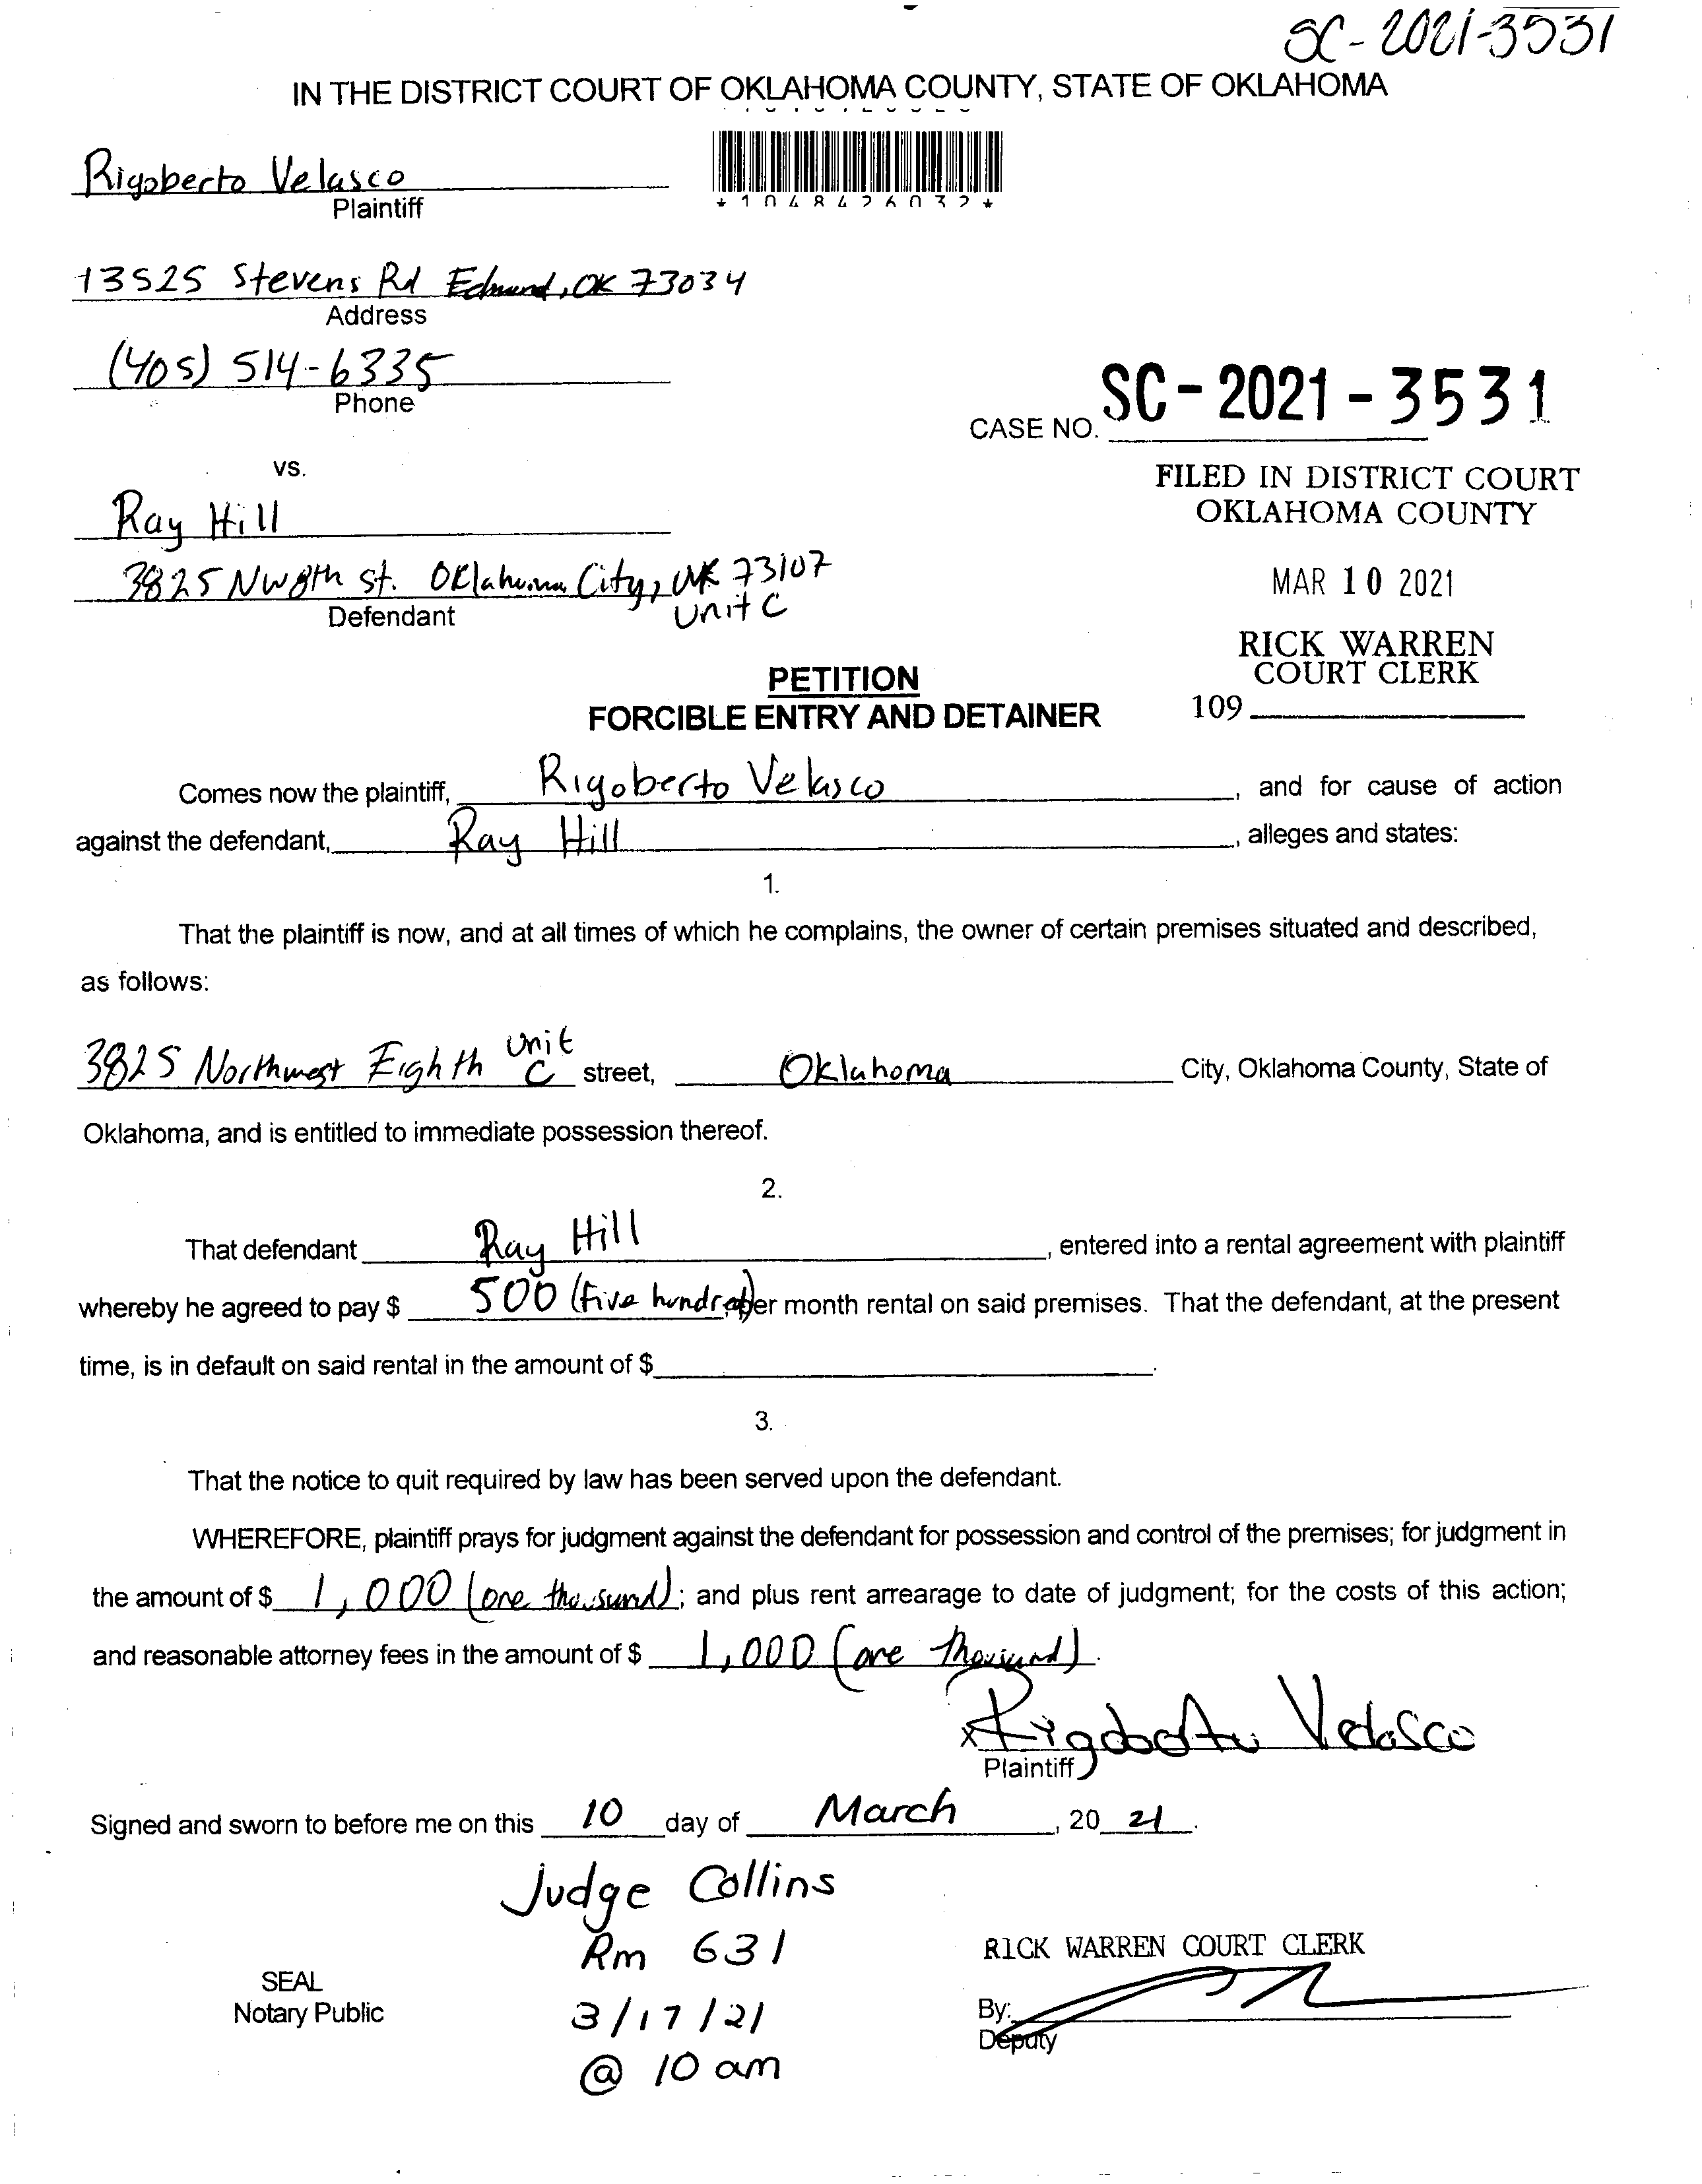 SC-2021-3531
IN THE DISTRICT COURT OF OKLAHOMA COUNTY, STATE OF OKLAHOMA
Rigoberto Velasco
Plaintiff
*1048426032*
13525 Stevens Rd Edmund, OK 73034
Address
(405) 514-6335
Phone
CASE NO. SC-2021-3531
vs.
FILED IN DISTRICT COURT
OKLAHOMA COUNTY
Ray Hill
MAR 10 2021
3825 NW 8th st. Oklahoma City, OK 73107
Unit C
Defendant
RICK WARREN
COURT CLERK
109
PETITION
FORCIBLE ENTRY AND DETAINER
Comes now the plaintiff, Rigoberto Velasco, and for cause of action
against the defendant, Ray Hill, alleges and states:
1.
That the plaintiff is now, and at all times of which he complains, the owner of certain premises situated and described,
as follows:
3825 Northwest Eighth Unit C street, Oklahoma City, Oklahoma County, State of
Oklahoma, and is entitled to immediate possession thereof.
2.
That defendant Ray Hill, entered into a rental agreement with plaintiff
whereby he agreed to pay $ 500 (five hundred) per month rental on said premises. That the defendant, at the present
time, is in default on said rental in the amount of $ .
3.
That the notice to quit required by law has been served upon the defendant.
WHEREFORE, plaintiff prays for judgment against the defendant for possession and control of the premises; for judgment in
the amount of $ 1,000 (one thousand); and plus rent arrearage to date of judgment; for the costs of this action;
and reasonable attorney fees in the amount of $ 1,000 (one thousand).
x Rigoberto Velasco
Plaintiff
Signed and sworn to before me on this 10 day of March, 20 21.
Judge Collins
Rm 631
3/17/21
@ 10 am
SEAL
Notary Public
RICK WARREN COURT CLERK
By:
Deputy